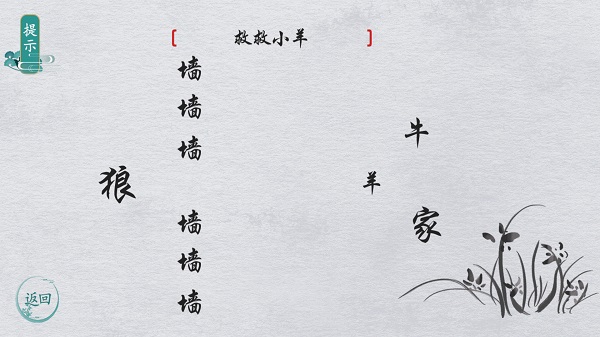 提示
救救小羊
墙
墙
墙
牛
狼
羊
家
墙
墙
墙
返回